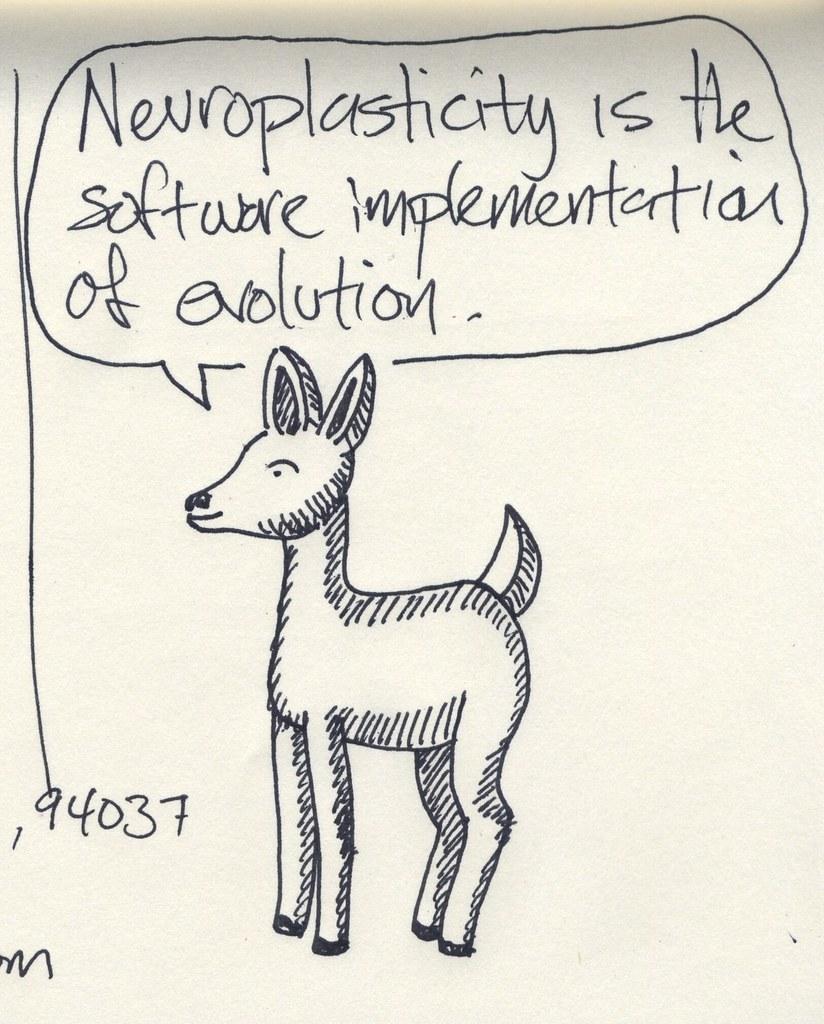 Neuroplasticity is the
software implementation
of evolution.
, 94037
om